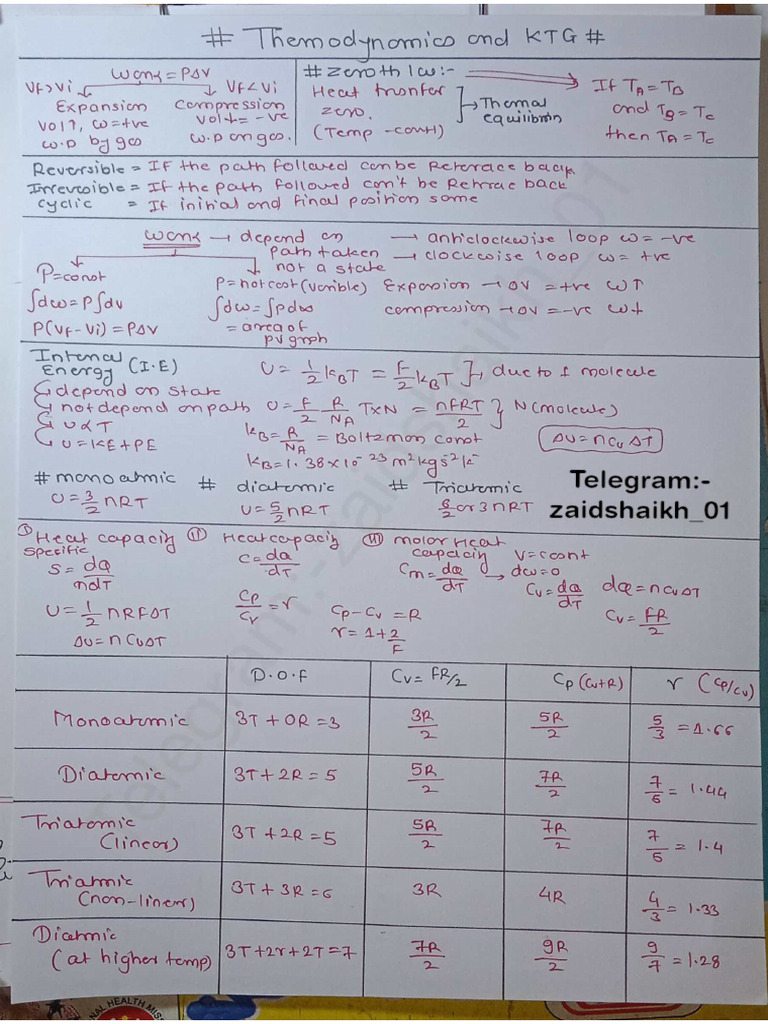 # Themodynamics and KTG #
Work = PΔV
Vf>Vi Vf<Vi
Expansion Compression
vol↑, w=+ve vol↓ = -ve
w.D by gas w.D on gas.
# zeroth law:-
Heat tranfer
zero.
(Temp -const)
Thermal
equilibrim
If TA = TB
and TB = TC
then TA = TC
Reversible = IF the path followed can be Reterace back
Irreversible = If the path followed can't be Retrace back
cyclic = If initial and final position same
work → depend on
path taken
not a state
→ anticlockwise loop w = -ve
→ clockwise loop w = +ve
P=const
∫dw = P∫dv
P(Vf - Vi) = PΔV
P = not cost (varible)
∫dw = ∫pdw
= area of
pv graph
Expansion → ΔV = +ve w↑
compression → ΔV = -ve w↓
Internal
Energy (I.E)
depend on state
not depend on path
U∝T
U = KE + PE
U = 1/2 kBT = F/2 kBT } → due to 1 molecule
U = F/2 R/NA T×N = nFRT/2 } N (molecule)
kB = R/NA = Boltzman const
kB = 1.38×10⁻²³ m²kgs⁻²k⁻
ΔU = nCvΔT
# monoatmic # diatomic # Triatomic
U = 3/2 nRT U = 5/2 nRT 6/2 or 3nRT
Telegram:-
zaidshaikh_01
① Heat capacity
specific
S = dQ/mdT
U = 1/2 nRFΔT
ΔU = nCvΔT
② Heat capacity
C = dQ/dT
Cp/Cv = r
③ molar Heat
capacity
Cm = dQ/dT
Cp - Cv = R
r = 1 + 2/F
V = const
→ dw = 0
Cv = dQ/dT
dQ = nCvΔT
Cv = FR/2
D.O.F Cv = FR/2 Cp (Cv+R) r (Cp/Cv)
Monoatomic 3T + 0R = 3 3R/2 5R/2 5/3 = 1.66
Diatomic 3T + 2R = 5 5R/2 7R/2 7/5 = 1.44
Triatomic
(linear) 3T + 2R = 5 5R/2 7R/2 7/5 = 1.4
Triatmic
(non-linerr) 3T + 3R = 6 3R 4R 4/3 = 1.33
Diatmic
(at higher temp) 3T + 2r + 2T = 7 7R/2 9R/2 9/7 = 1.28
Telegram:-zaidshaikh_01
NAL HEALTH MISS